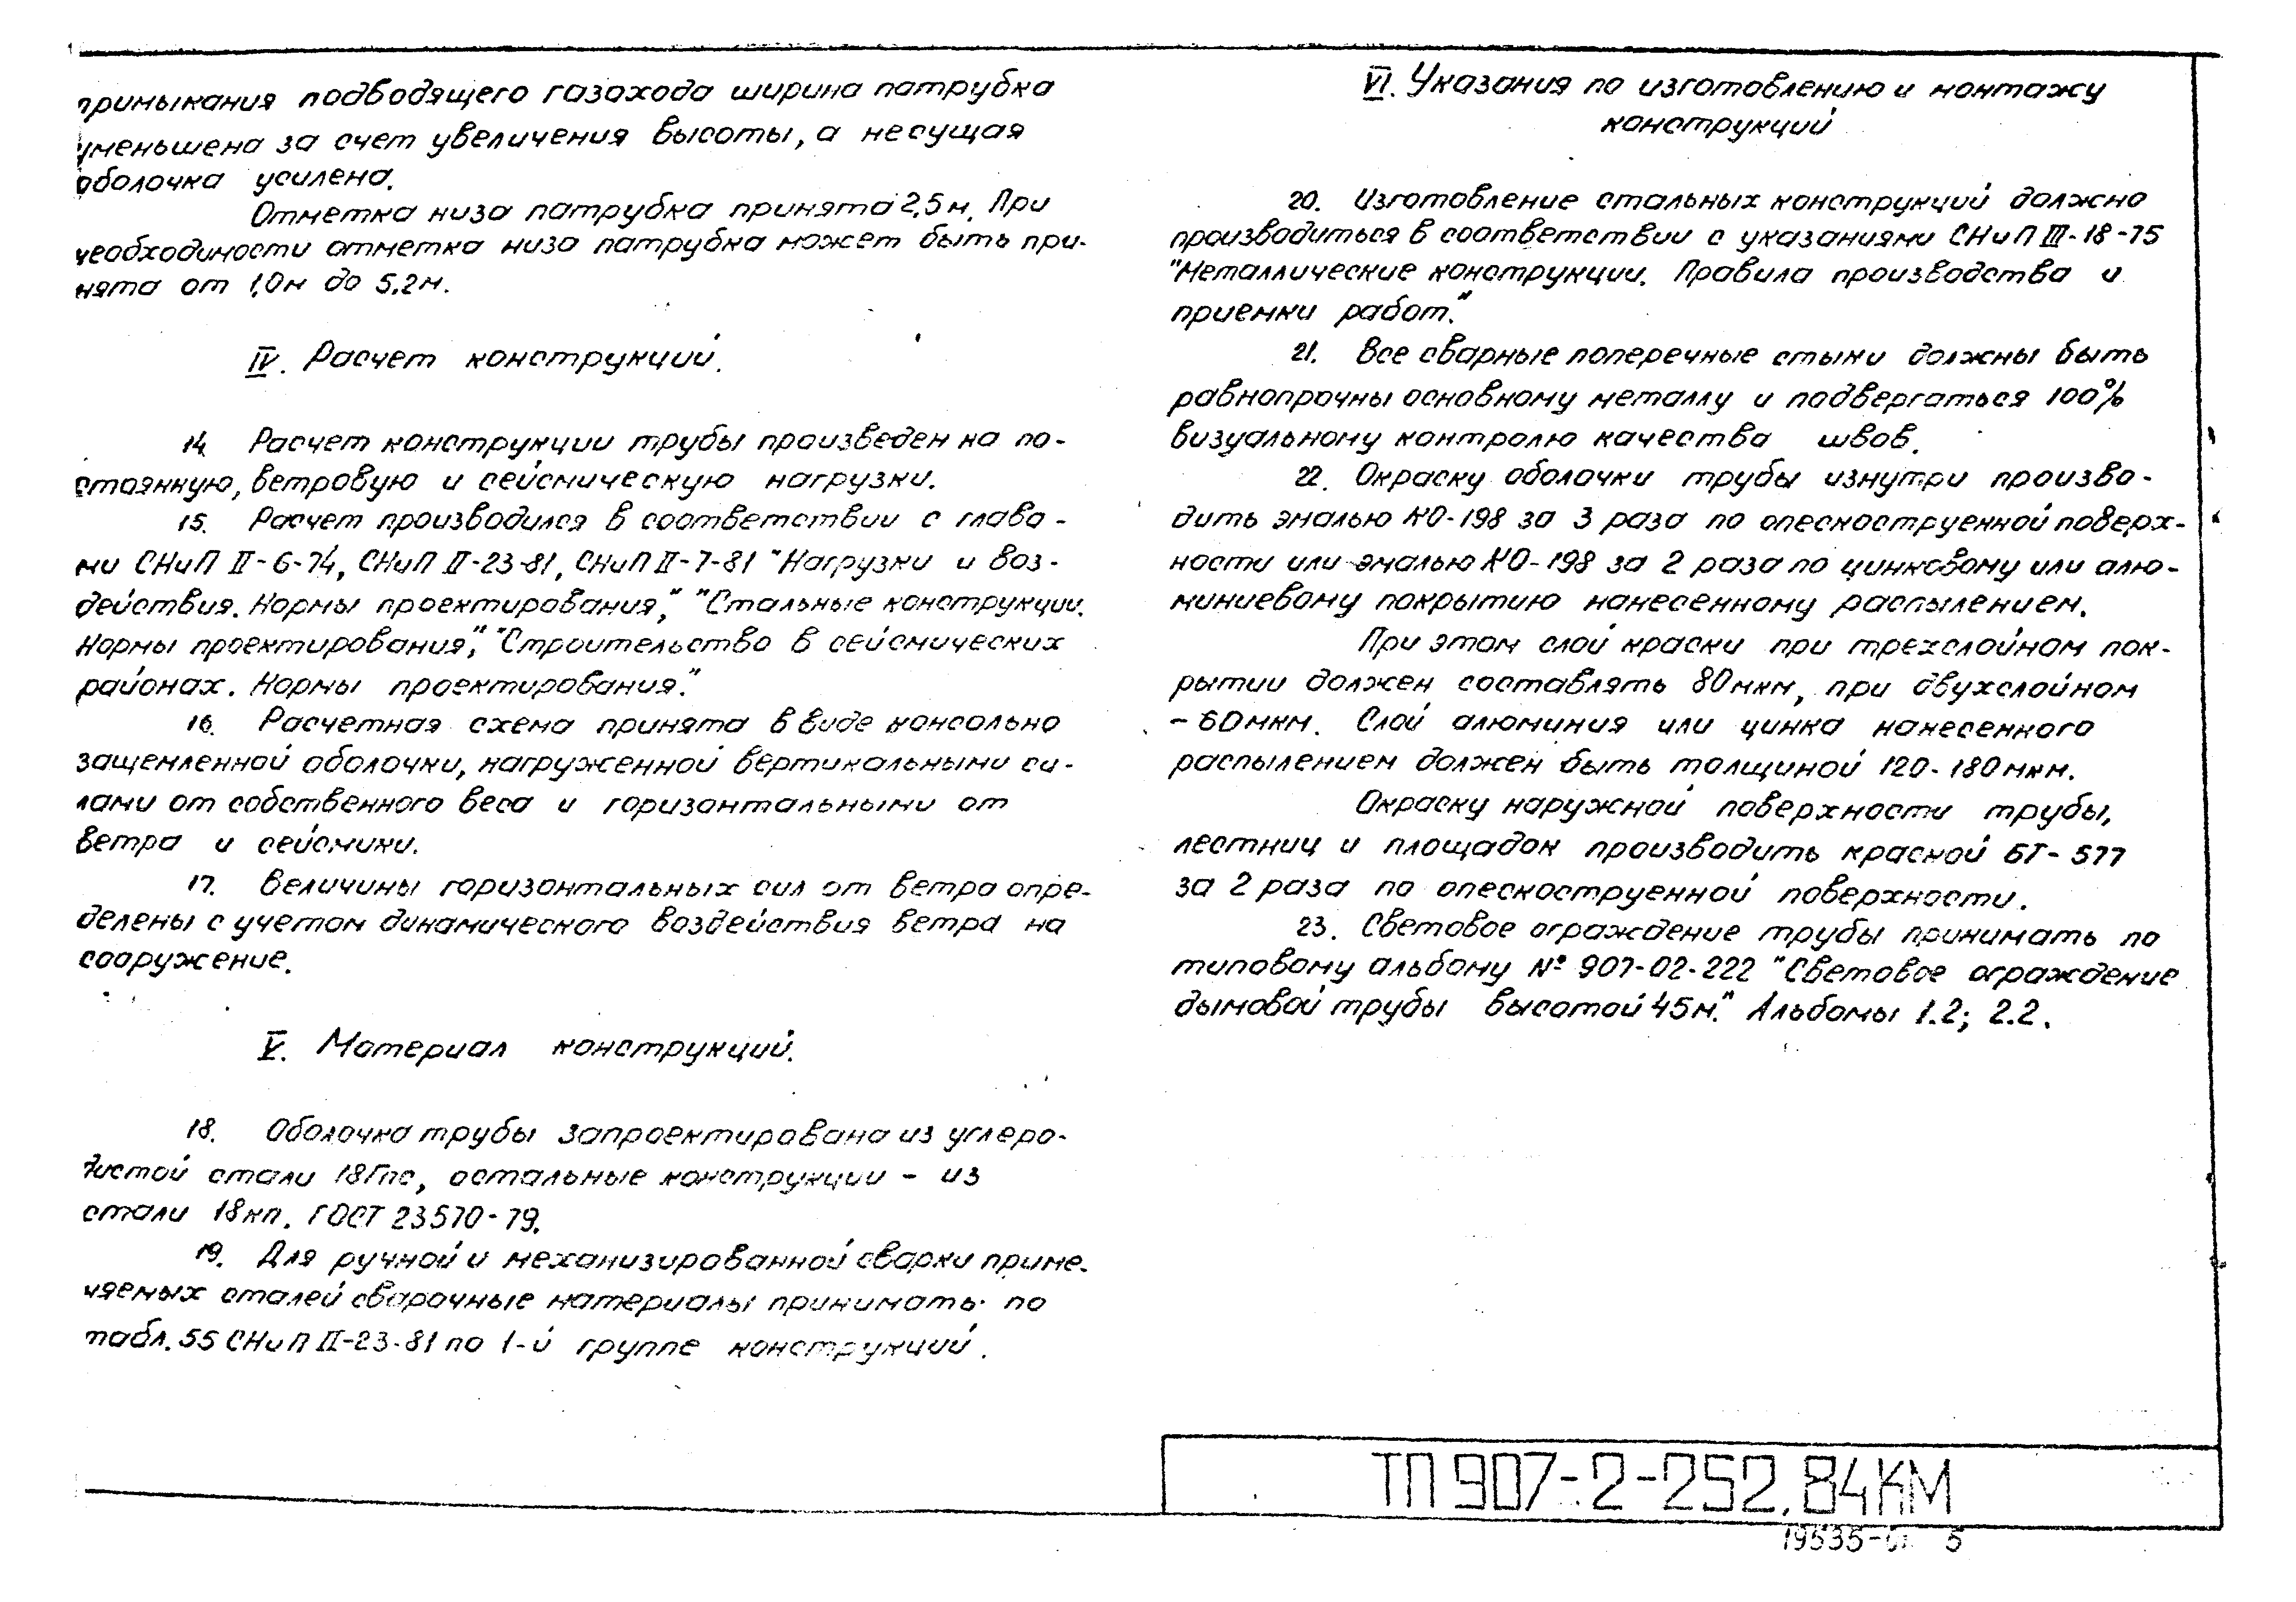 примыкания подводящего газохода ширина патрубка
уменьшена за счет увеличения высоты, а несущая
оболочка усилена.
Отметка низа патрубка принята 2,5м. При
необходимости отметка низа патрубка может быть при-
нята от 1,0м до 5.2м.
IV. Расчет конструкций.
14. Расчет конструкции трубы произведен на по-
стоянную, ветровую и сейсмическую нагрузки.
15. Расчет производился в соответствии с глава-
ми СНиП II-6-74, СНиП II-23-81, СНиП II-7-81 "Нагрузки и воз-
действия. Нормы проектирования", "Стальные конструкции.
Нормы проектирования", "Строительство в сейсмических
районах. Нормы проектирования."
16. Расчетная схема принята в виде консольно
защемленной оболочки, нагруженной вертикальными си-
лами от собственного веса и горизонтальными от
ветра и сейсмики.
17. Величины горизонтальных сил от ветра опре-
делены с учетом динамического воздействия ветра на
сооружение.
V. Материал конструкций.
18. Оболочка трубы запроектирована из углеро-
дистой стали 18Гпс, остальные конструкции - из
стали 18кп. ГОСТ 23570-79.
19. Для ручной и механизированной сварки приме-
няемых сталей сварочные материалы принимать по
табл. 55 СНиП II-23-81 по 1-й группе конструкций.
VI. Указания по изготовлению и монтажу
конструкций
20. Изготовление стальных конструкций должно
производиться в соответствии с указаниями СНиП III-18-75
"Металлические конструкции. Правила производства и
приемки работ."
21. Все сварные поперечные стыки должны быть
равнопрочны основному металлу и подвергаться 100%
визуальному контролю качества швов.
22. Окраску оболочки трубы изнутри произво-
дить эмалью КО-198 за 3 раза по опескоструенной поверх-
ности или эмалью КО-198 за 2 раза по цинковому или алю-
миниевому покрытию нанесенному распылением.
При этом слой краски при трехслойном пок-
рытии должен составлять 80мкм, при двухслойном
- 60мкм. Слой алюминия или цинка нанесенного
распылением должен быть толщиной 120-180мкм.
Окраску наружной поверхности трубы,
лестниц и площадок производить краской БТ-577
за 2 раза по опескоструенной поверхности.
23. Световое ограждение трубы принимать по
типовому альбому № 907-02-222 "Световое ограждение
дымовой трубы высотой 45м." Альбомы 1.2; 2.2.
ТП 907-2-252.84КМ
19535-01 5